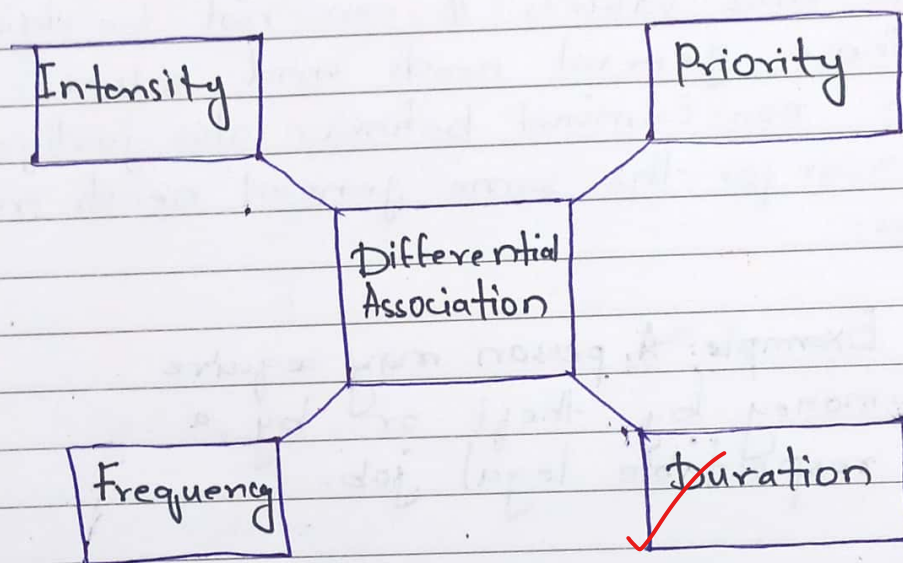 Intensity
Priority
Differential
Association
Frequency
Duration